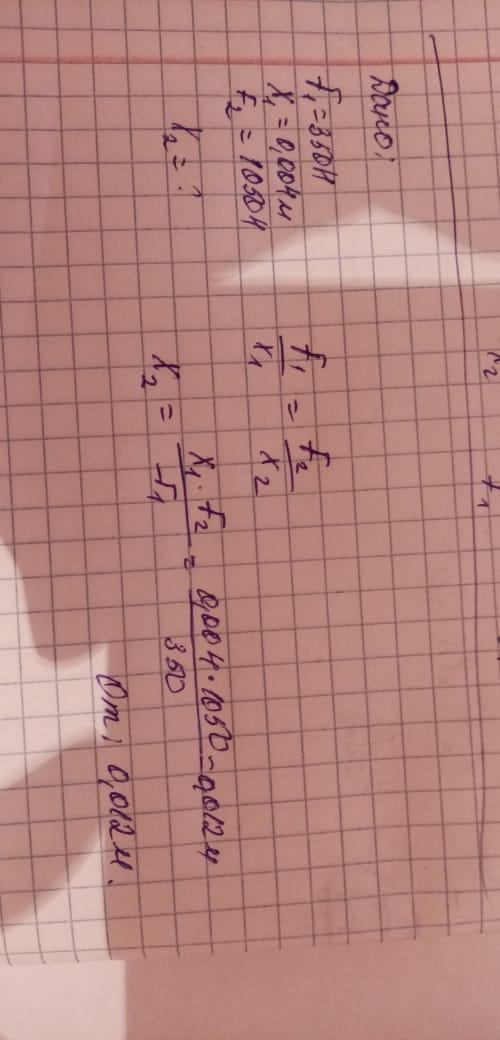 Дано:
F₁ = 350 Н
x₁ = 0,004 м
F₂ = 1050 Н
x₂ = ?
F₁/x₁ = F₂/x₂
x₂ = x₁ · F₂/F₁ = 0,004 · 1050/350 = 0,012 м
От: 0,012 м.